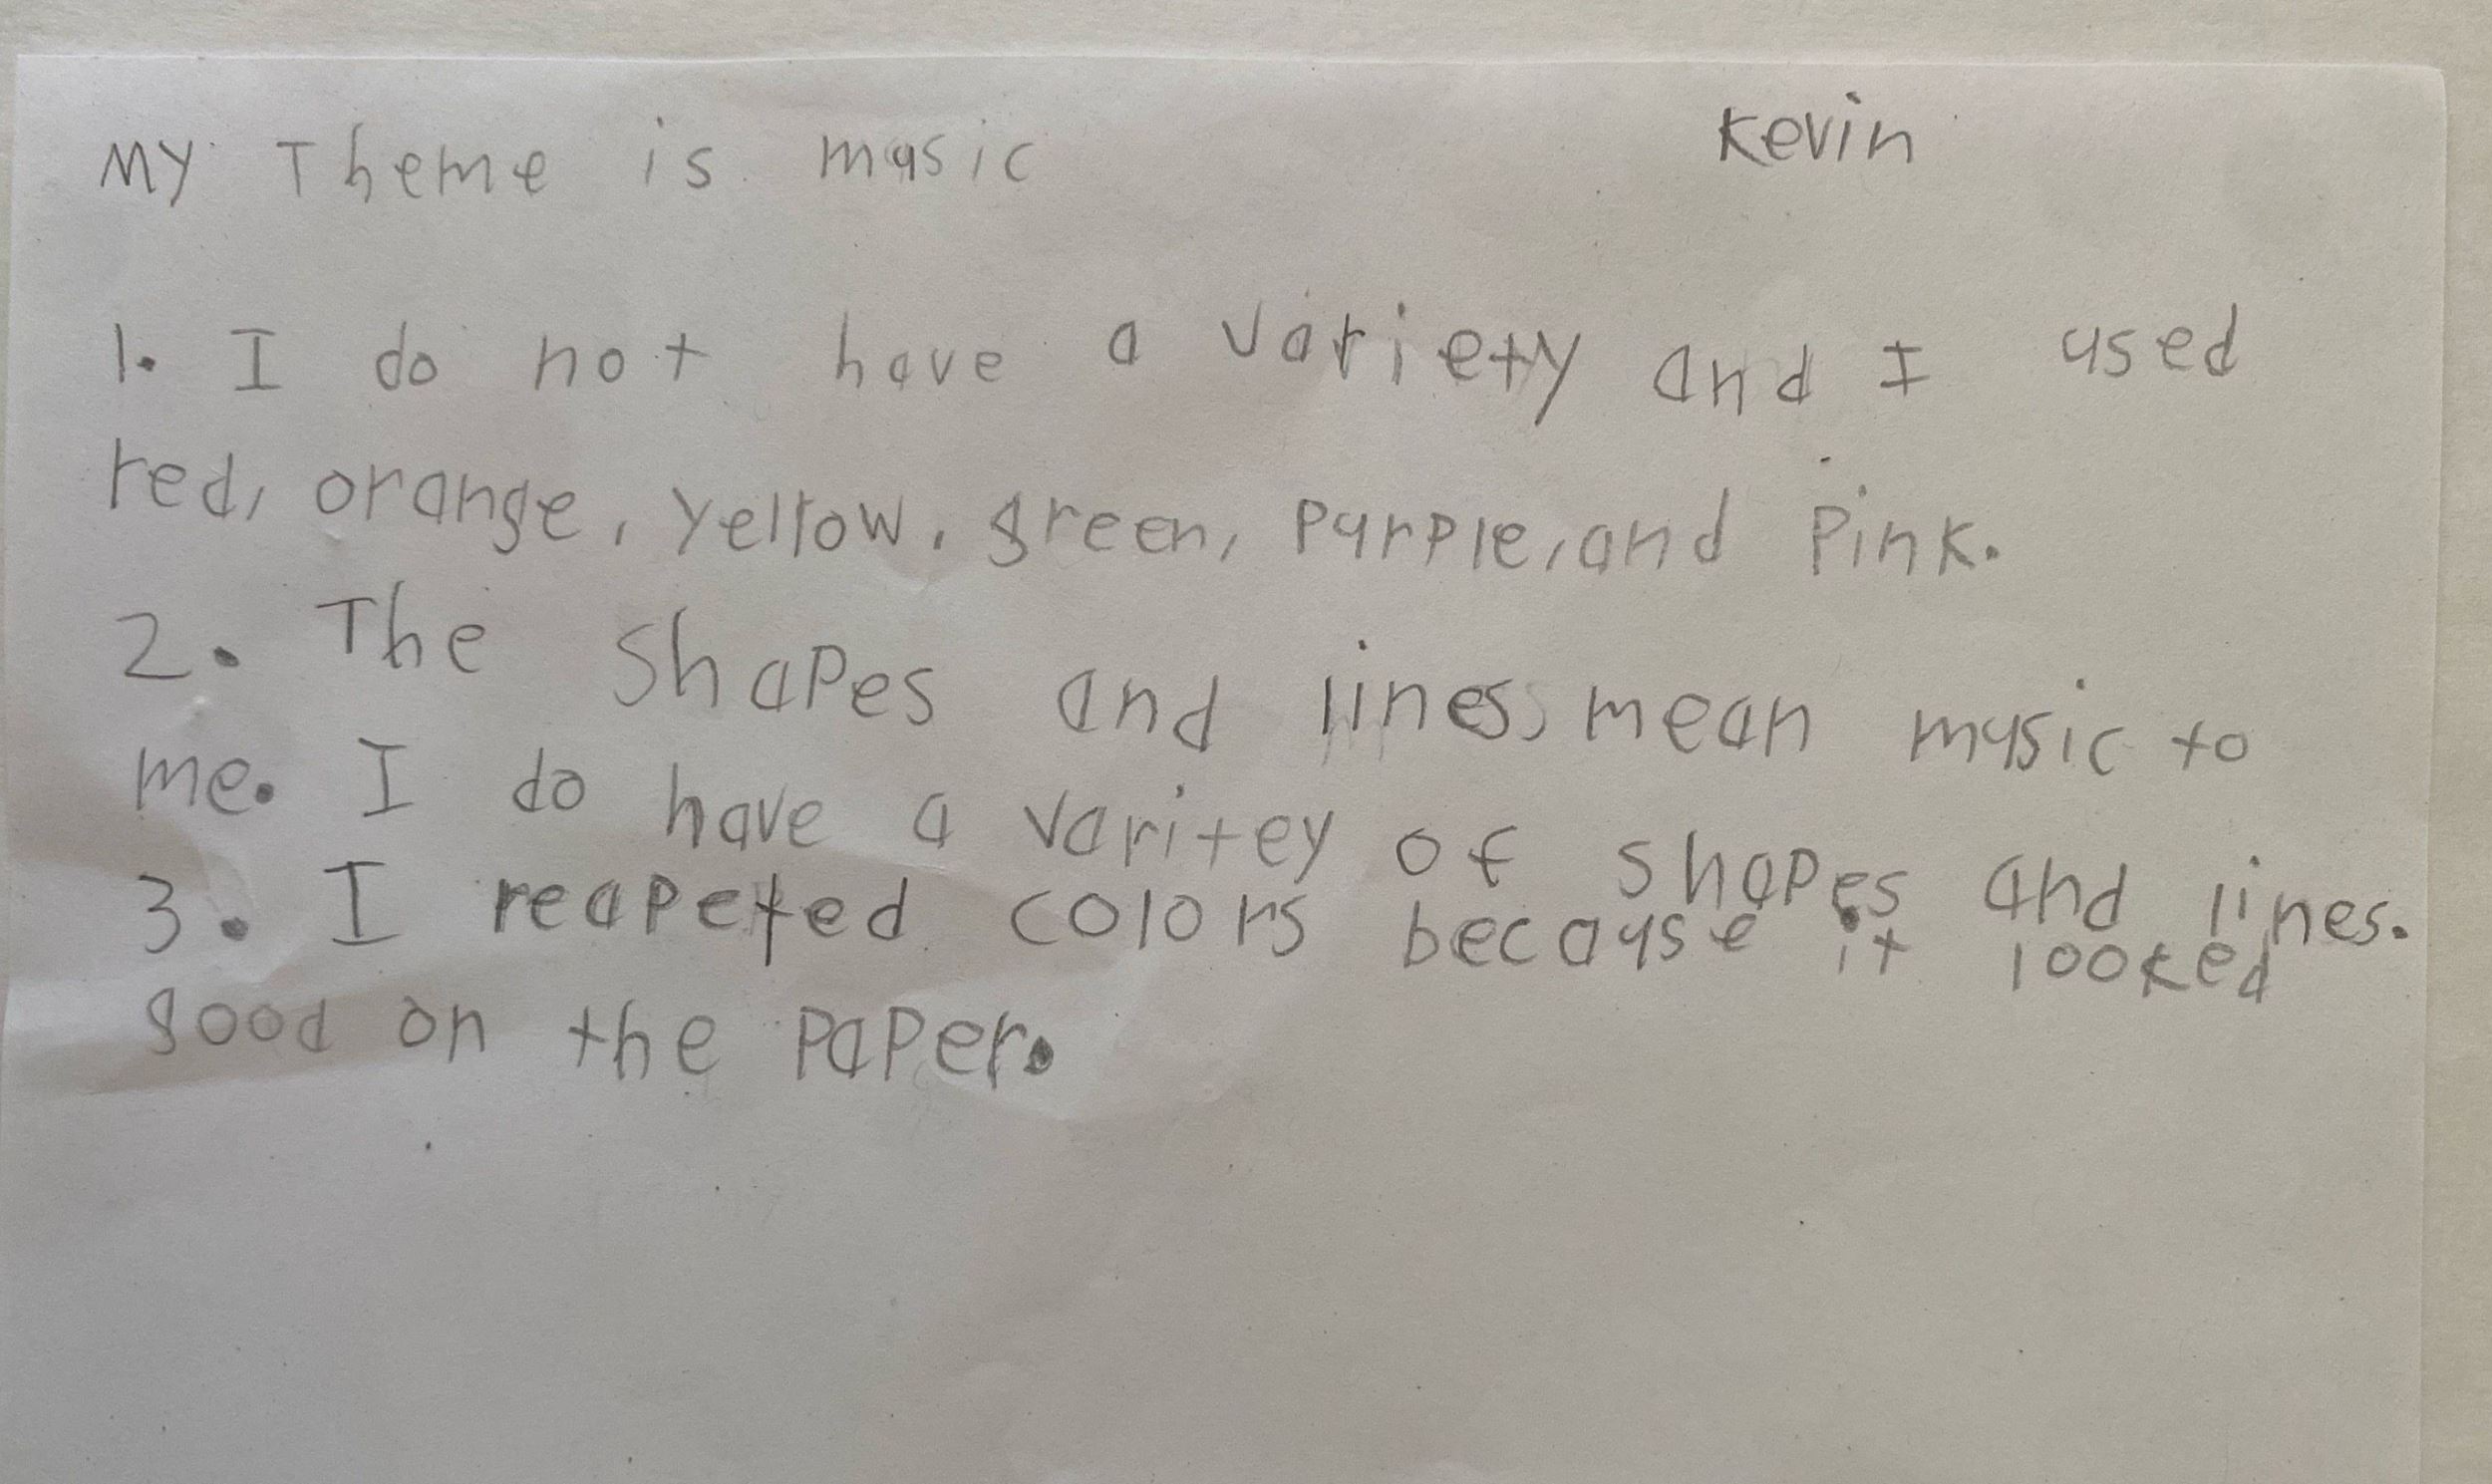 My Theme is music
Kevin
1. I do not have a variety and I used
red, orange, yellow, green, purple, and pink.
2. The shapes and lines mean music to
me. I do have a varitey of shapes and lines.
3. I reapeted colors because it looked
good on the paper.